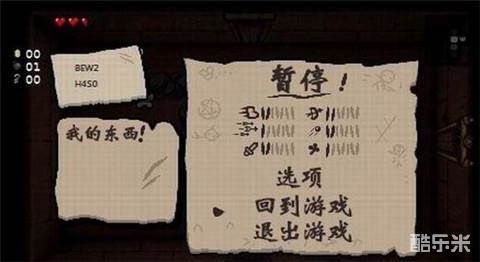 00
01
00
BEW2
H4S0
我的东西!
暂停!
选项
回到游戏
退出游戏
酷乐米